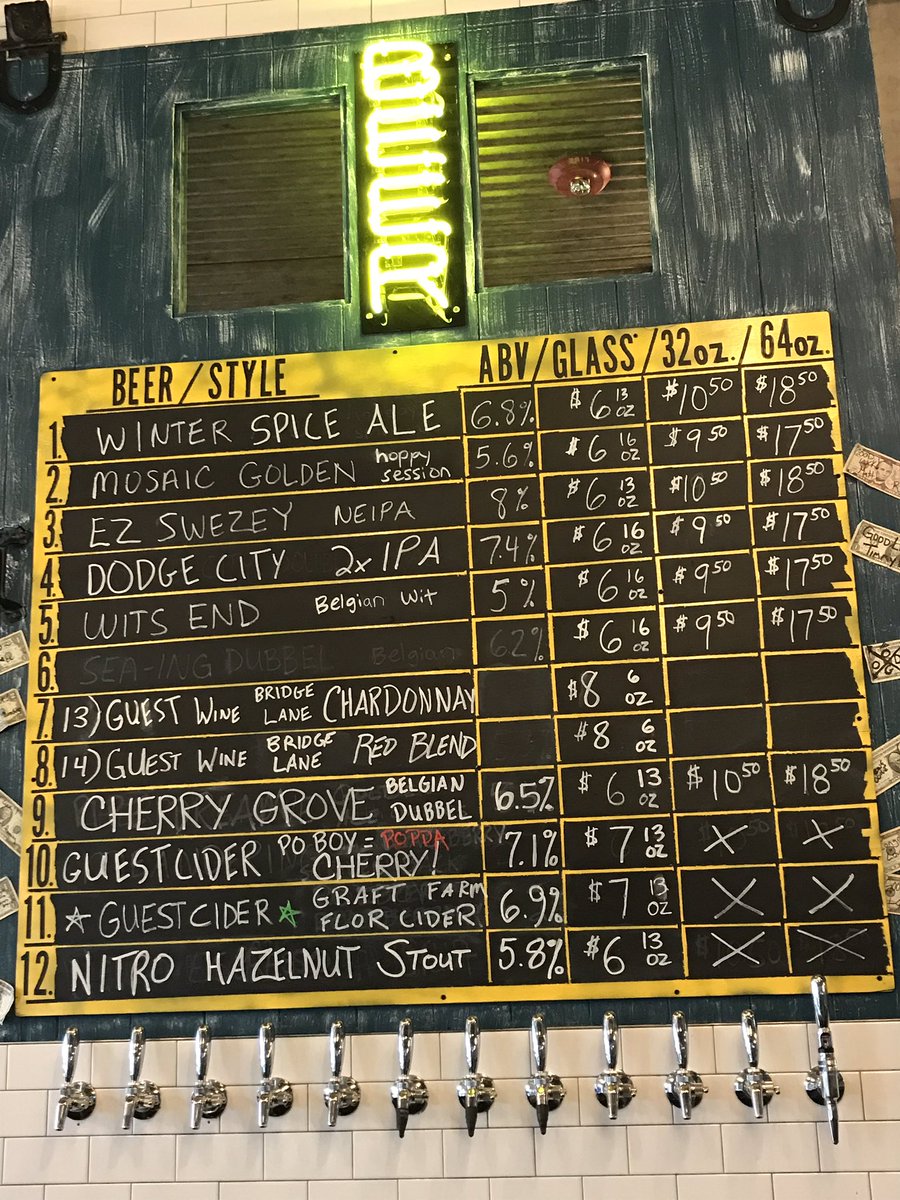 BEER / STYLE ABV / GLASS / 32oz. / 64oz.
1. WINTER SPICE ALE 6.8% $6 13 oz $10 50 $18 50
2. MOSAIC GOLDEN hoppy session 5.6% $6 16 oz $9 50 $17 50
3. EZ SWEZEY NEIPA 8% $6 13 oz $10 50 $18 50
4. DODGE CITY 2x IPA 7.4% $6 16 oz $9 50 $17 50
5. WITS END Belgian Wit 5% $6 16 oz $9 50 $17 50
6. SEA-ING DUBBEL Belgian 6.2% $6 16 oz $9 50 $17 50
7. 13) GUEST WINE BRIDGE LANE CHARDONNAY $8 6 oz
8. 14) GUEST WINE BRIDGE LANE RED BLEND $8 6 oz
9. CHERRY GROVE BELGIAN DUBBEL 6.5% $6 13 oz $10 50 $18 50
10. GUEST CIDER PO BOY = POPPA CHERRY! 7.1% $7 13 oz X X
11. ☆ GUEST CIDER ☆ GRAFT FARM FLOR CIDER 6.9% $7 13 oz X X
12. NITRO HAZELNUT STOUT 5.8% $6 13 oz X X